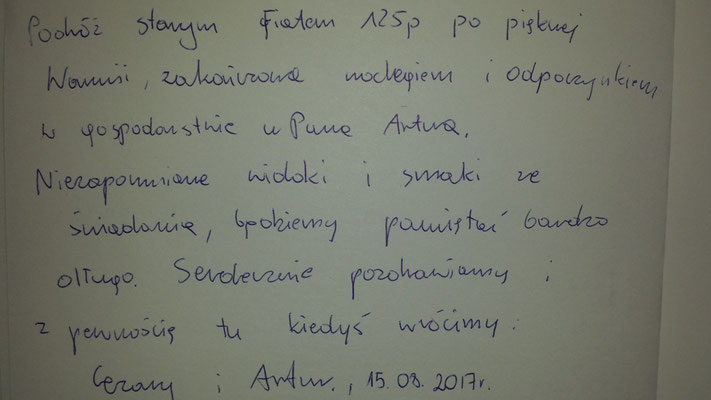 Podróż starym Fiatem 125p po pięknej
Warmii, zakończona noclegiem i odpoczynkiem
w gospodarstwie u Pana Artura.
Niezapomniane widoki i smaki ze
śniadania, będziemy pamiętać bardzo
długo. Serdecznie pozdrawiamy i
z pewnością tu kiedyś wrócimy.
Cezary i Artur., 15.08.2017r.